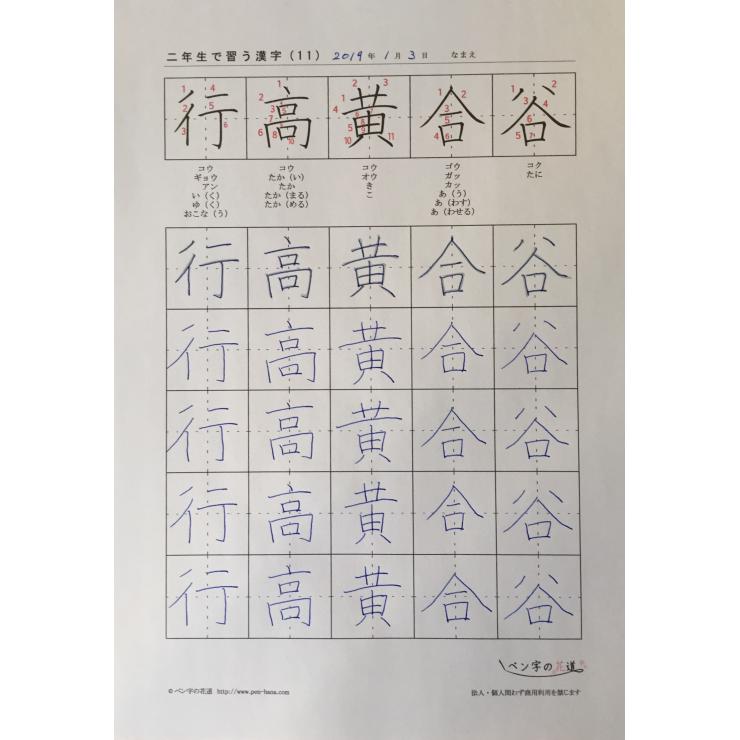 二年生で習う漢字(11) 2019年 1月 3日 なまえ
行 高 黄 合 谷
コウ コウ コウ ゴウ コク
ギョウ たか(い) オウ ガッ たに
アン たか き カッ
い(く) たか(まる) こ あ(う)
ゆ(く) たか(める) あ(わす)
おこな(う) あ(わせる)
行 高 黄 合 谷
行 高 黄 合 谷
行 高 黄 合 谷
行 高 黄 合 谷
行 高 黄 合 谷
ペン字の花道
© ペン字の花道 http://www.pen-hana.com 法人・個人問わず商用利用を禁じます